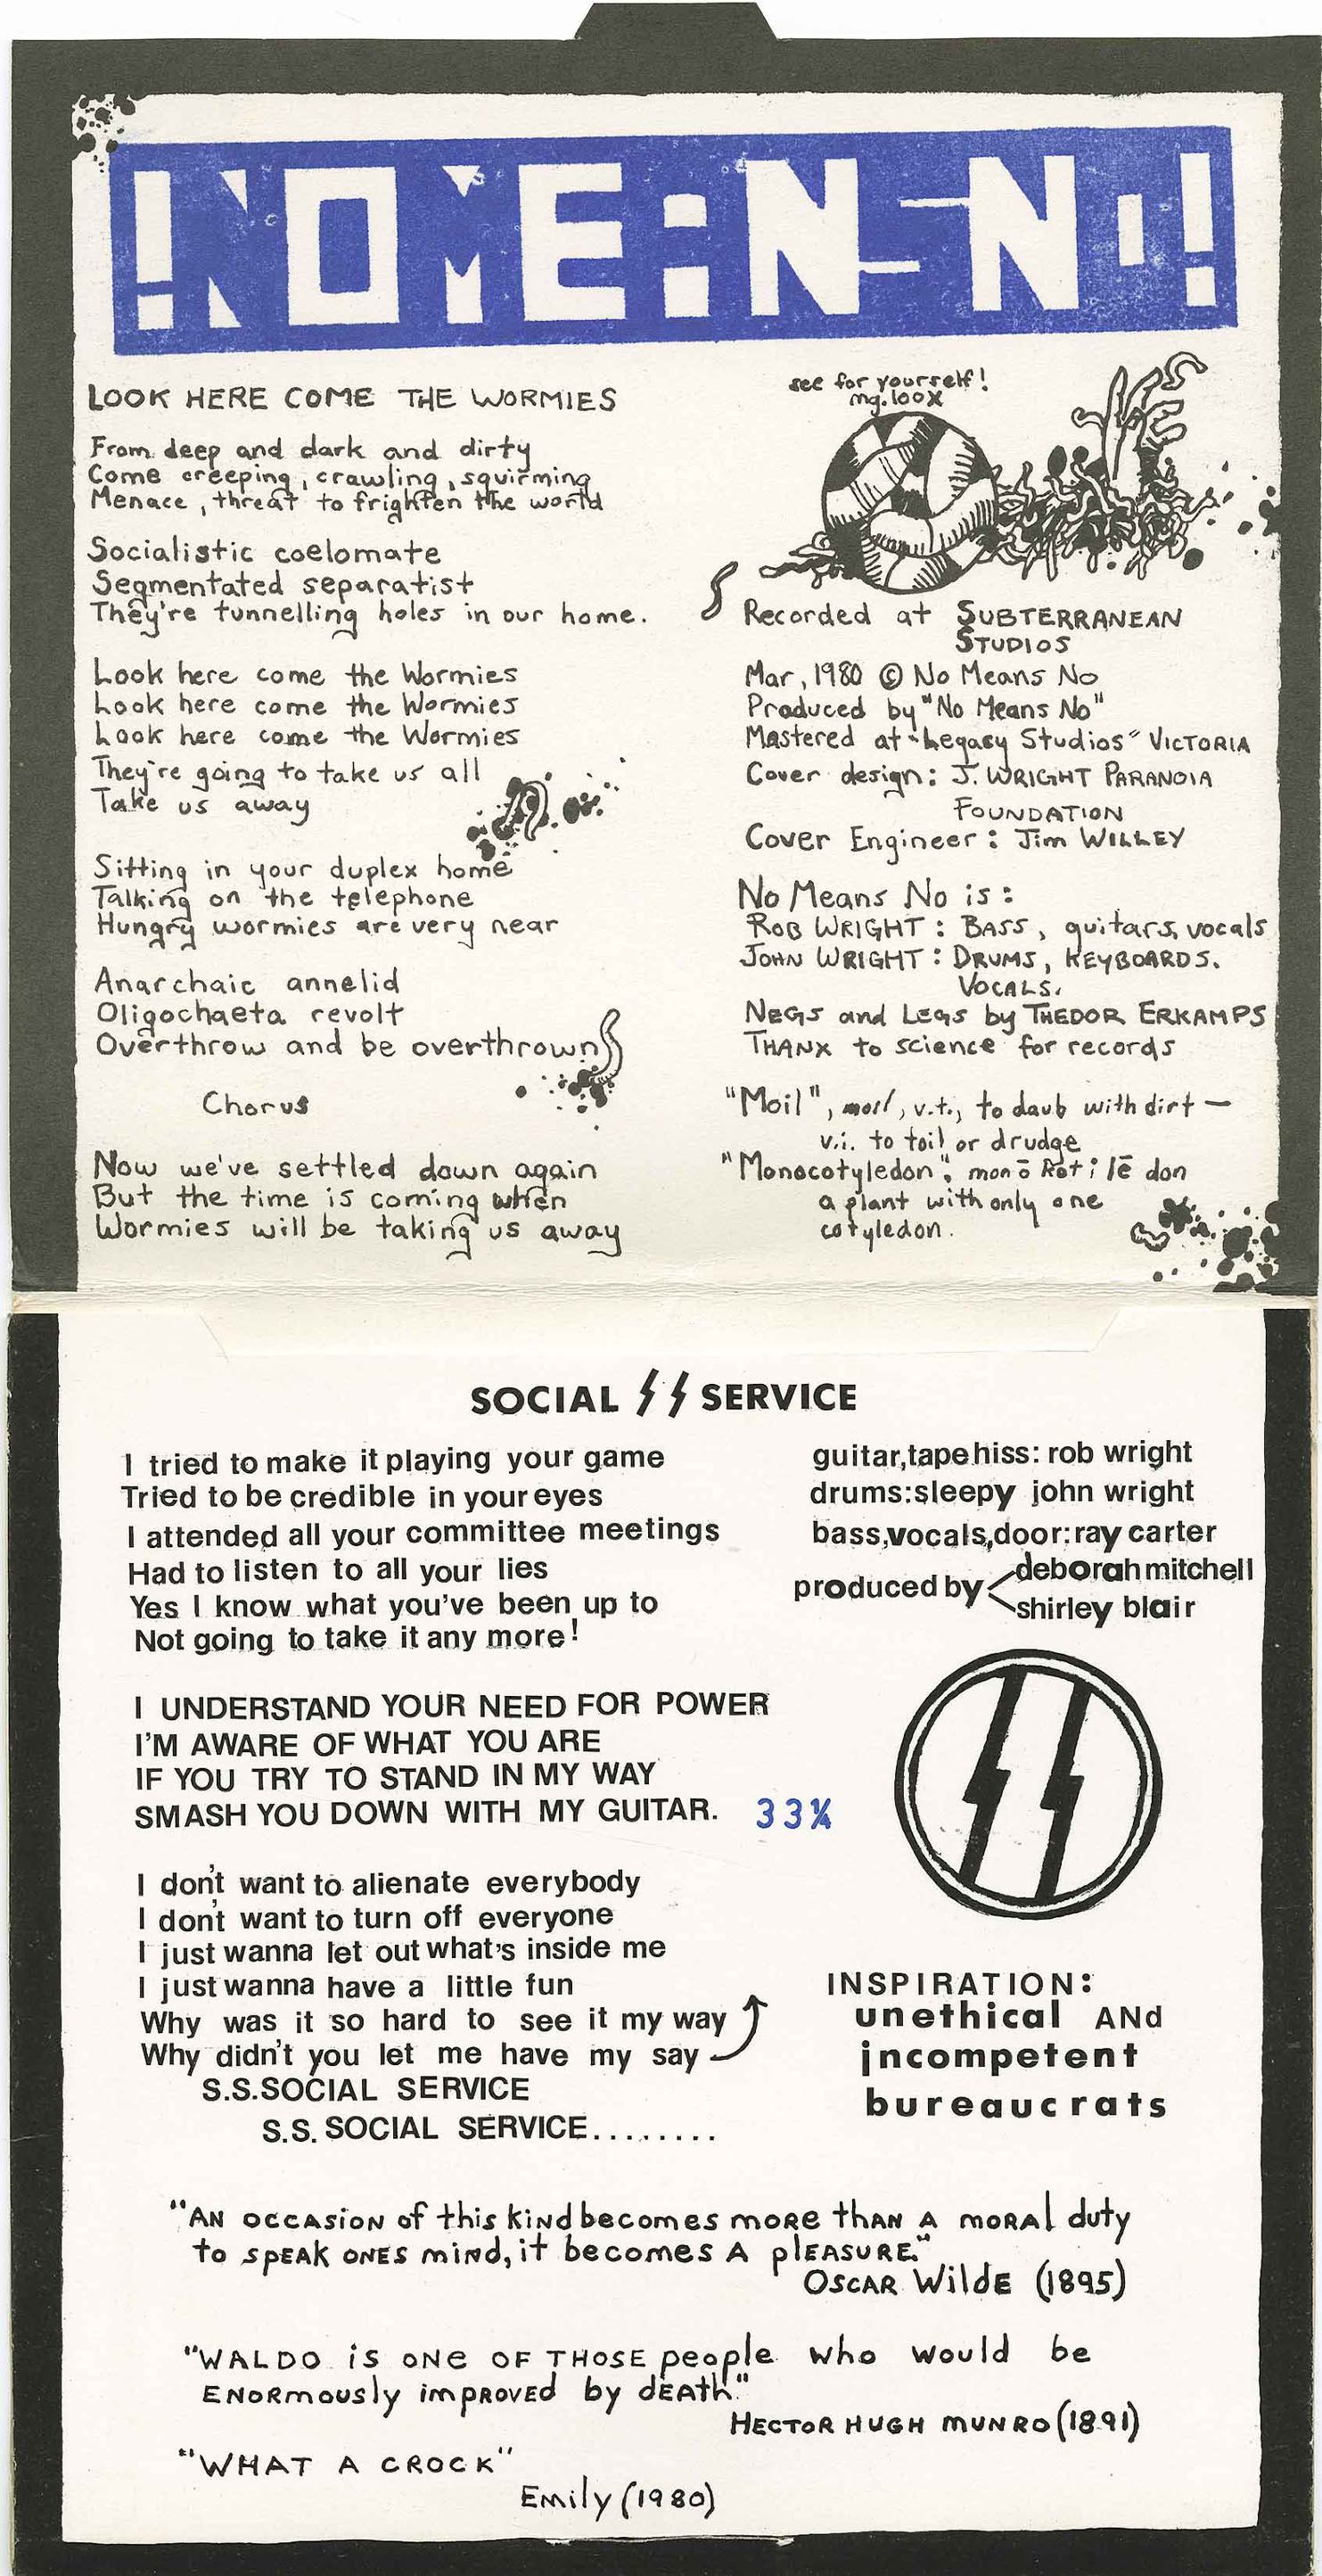 !NOMEANSNO!
LOOK HERE COME THE WORMIES
From deep and dark and dirty
Come creeping, crawling, squirming
Menace, threat to frighten the world
Socialistic coelomate
Segmentated separatist
They're tunnelling holes in our home.
Look here come the Wormies
Look here come the Wormies
Look here come the Wormies
They're going to take us all
Take us away
Sitting in your duplex home
Talking on the telephone
Hungry wormies are very near
Anarchaic annelid
Oligochaeta revolt
Overthrow and be overthrown
Chorus
Now we've settled down again
But the time is coming when
Wormies will be taking us away
see for yourself!
mg.100X
Recorded at SUBTERRANEAN
STUDIOS
Mar, 1980 © No Means No
Produced by "No Means No"
Mastered at "Legacy Studios" VICTORIA
Cover design: J. WRIGHT PARANOIA
FOUNDATION
Cover Engineer: Jim WILLEY
No Means No is:
ROB WRIGHT: BASS, guitars, vocals
JOHN WRIGHT: DRUMS, KEYBOARDS.
VOCALS.
NEGS and LEGS by THEDOR ERKAMPS
THANX to science for records
"Moil", moil, v.t., to daub with dirt —
v.i. to toil or drudge
"Monocotyledon", mon ō kot i lē don
a plant with only one
cotyledon.
SOCIAL SS SERVICE
I tried to make it playing your game
Tried to be credible in your eyes
I attended all your committee meetings
Had to listen to all your lies
Yes I know what you've been up to
Not going to take it any more!
I UNDERSTAND YOUR NEED FOR POWER
I'M AWARE OF WHAT YOU ARE
IF YOU TRY TO STAND IN MY WAY
SMASH YOU DOWN WITH MY GUITAR.
33⅓
I don't want to alienate everybody
I don't want to turn off everyone
I just wanna let out what's inside me
I just wanna have a little fun
Why was it so hard to see it my way
Why didn't you let me have my say
S.S.SOCIAL SERVICE
S.S. SOCIAL SERVICE........
guitar,tape hiss: rob wright
drums:sleepy john wright
bass,vocals,door:ray carter
produced by deborah mitchell
shirley blair
SS
INSPIRATION:
unethical ANd
incompetent
bureaucrats
"AN OCCASION of this kind becomes more than A moral duty
to SPEAK ONES mind, it becomes A pLEASURE."
OSCAR WildE (1895)
"WALDO is ONe OF THOSE people who would be
ENORmously imPROVEd by dEATh"
HECTOR HUGH MUNRO (1891)
"WHAT A CROCK"
Emily (1980)